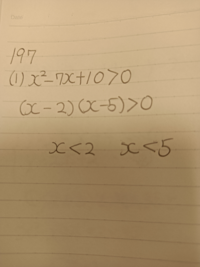 197
(1) x²-7x+10>0
(x-2)(x-5)>0
x<2 x<5